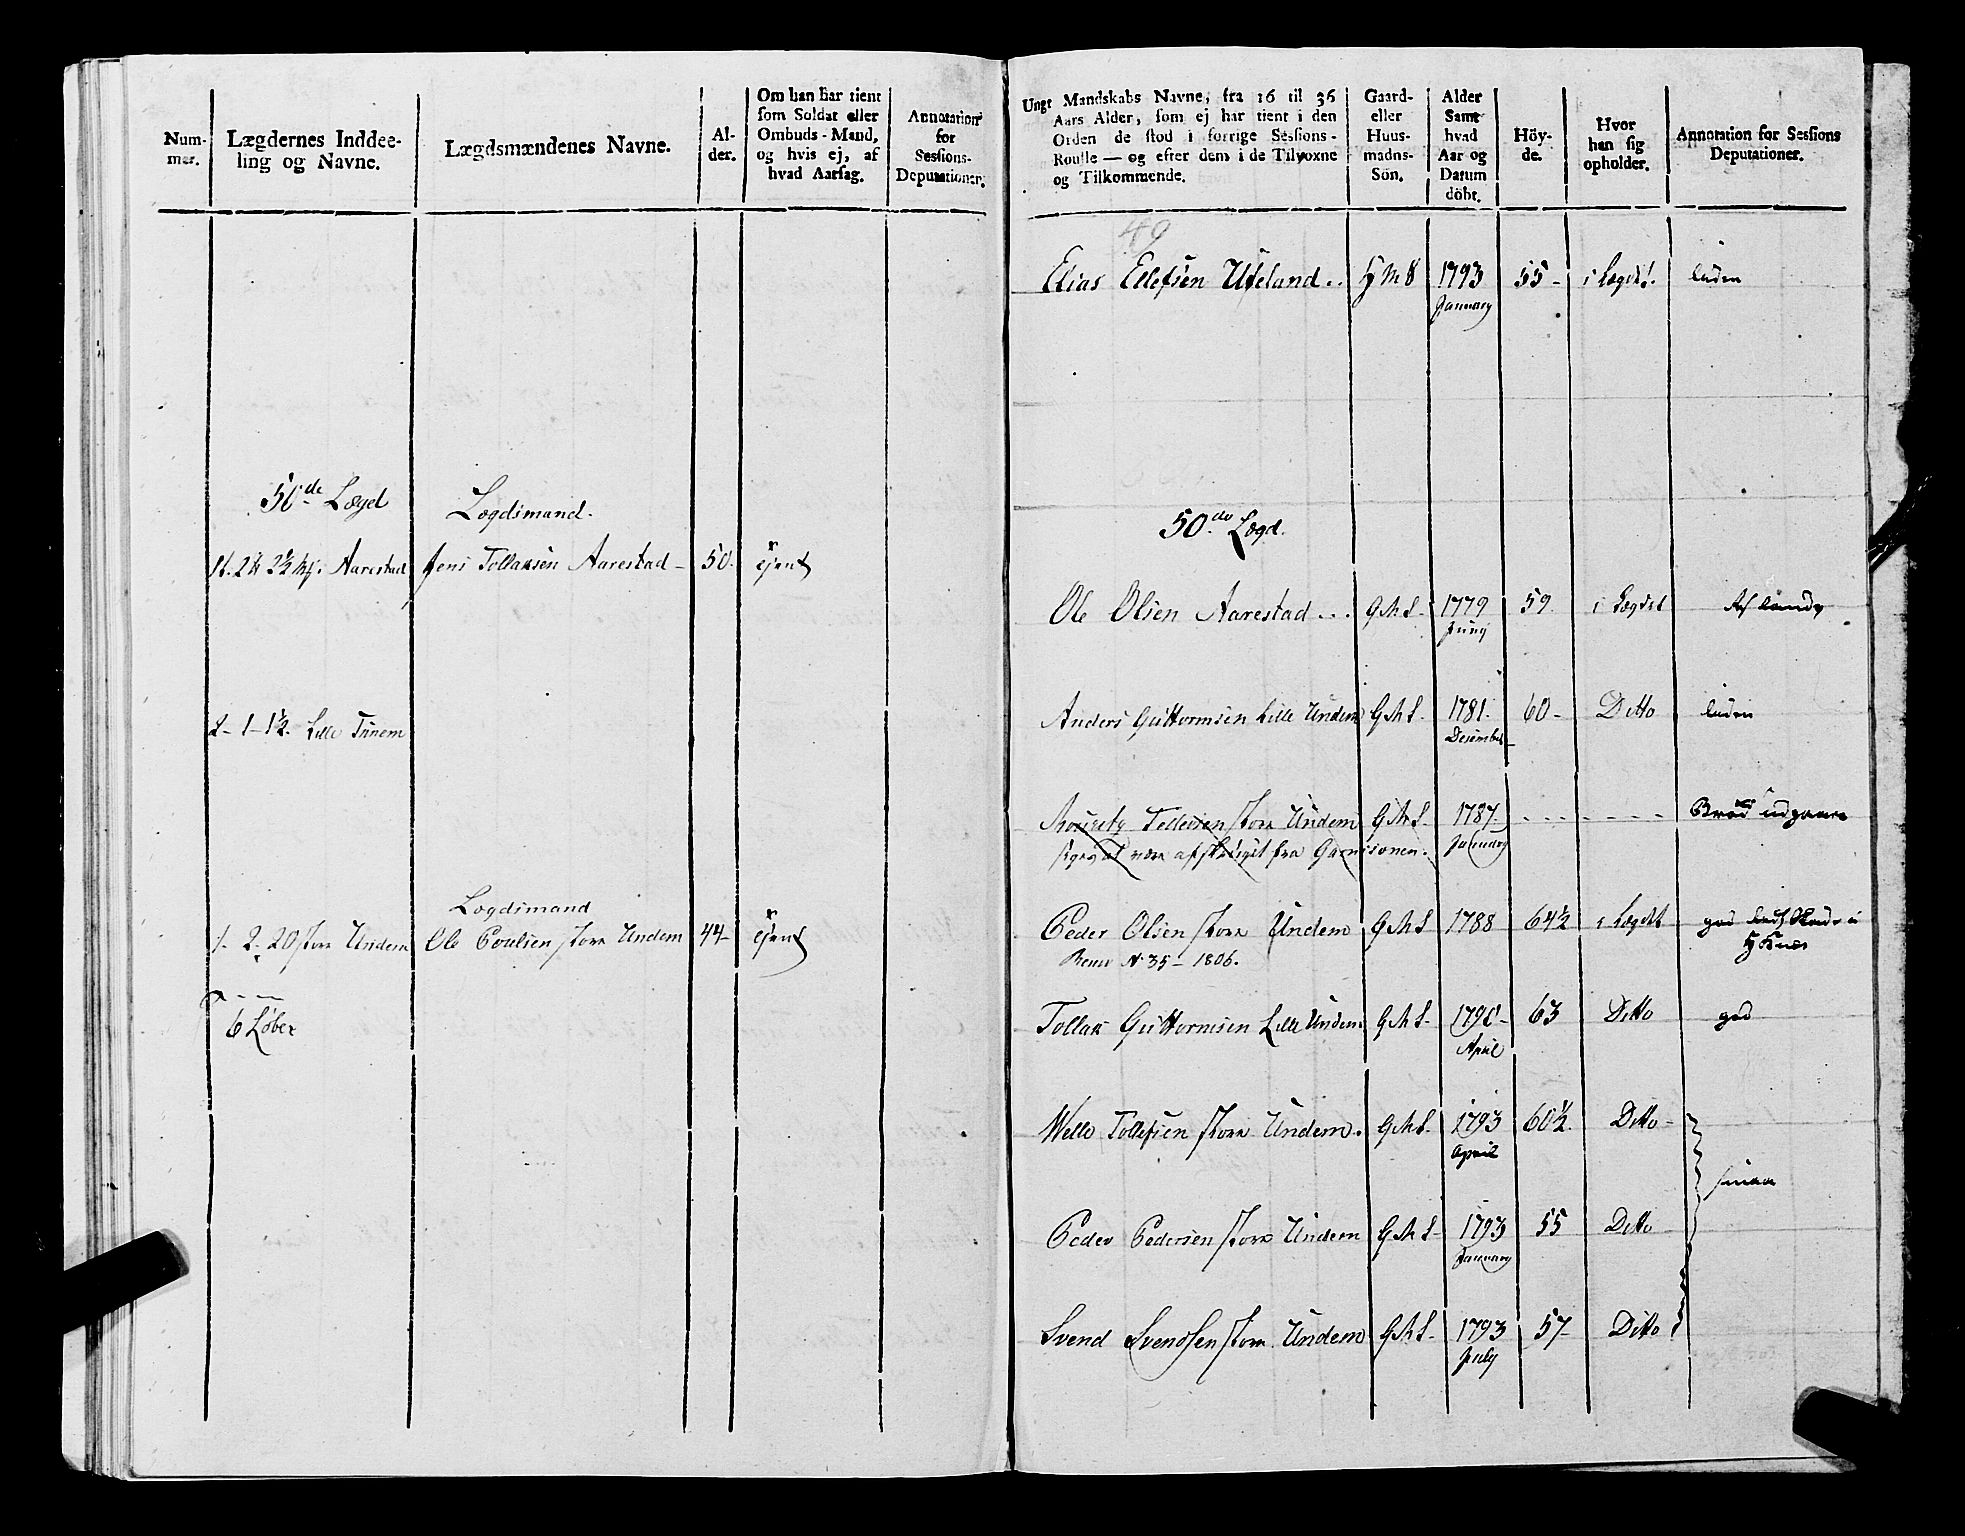 Num-
mer.
Lægdernes Inddee-
ling og Navne.
Lægdsmændenes Navne.
Al-
der.
Om han har tient
som Soldat eller
Ombuds-Mand,
og hvis ej, af
hvad Aarsag.
Annotation
for
Sessions-
Deputationer.
50de Lægd
Lægdsmand.
Aarestad Jens Tollaksen Aarestad - 50. tient
1 - 1½. Lille
Lægdsmand
1 - 2 - 20 store Undem Ole Poulsen store Undem 44 - tient
6 Løber
Ungt Mandskabs Navne, fra 16 til 36
Aars Alder, som ej har tient i den
Orden de stod i forrige Sessions-
Roulle — og efter dem i de Tilvoxne
og Tilkommende.
Gaard-
eller
Huus-
madns-
Sön.
Alder
Samt
hvad
Aar og
Datum
döbt.
Höy-
de.
Hvor
han sig
opholder.
Annotation for Sessions
Deputationer.
49
Elias Ellefsen Useland .. H M S 1793 55 - i Lægdet liden
January
50de Lægd.
Ole Olsen Aarestad ... G M S - 1779 59 i Lægdet
Juny
Anders Guttormsen Lille Undem G M S - 1781. 60 - Ditto liden
Desember
Tellevsen store Undem G M S - 1787 - udgaaer
være fra Garnisonen. January
Peder Olsen store Undem G M S 1788 64½ i Lægdet god
Knæe
No 35 - 1806.
Tollak Guttormsen Lille Undem G M S - 1790 - 63 Ditto god
April
Welle Tollefsen store Undem. G M S - 1793 60½. Ditto -
April
smaa
Peder Pedersen store Undem G M S - 1793 55 Ditto
January
Svend Svendsen store Undem G M S - 1793 57 - Ditto
July